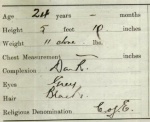 Age 24 years - months
Height 5 feet 10 inches
Weight 11 stone lbs.
Chest Measurement
Complexion Dark
Eyes Grey
Hair Black
Religious Denomination C of E.